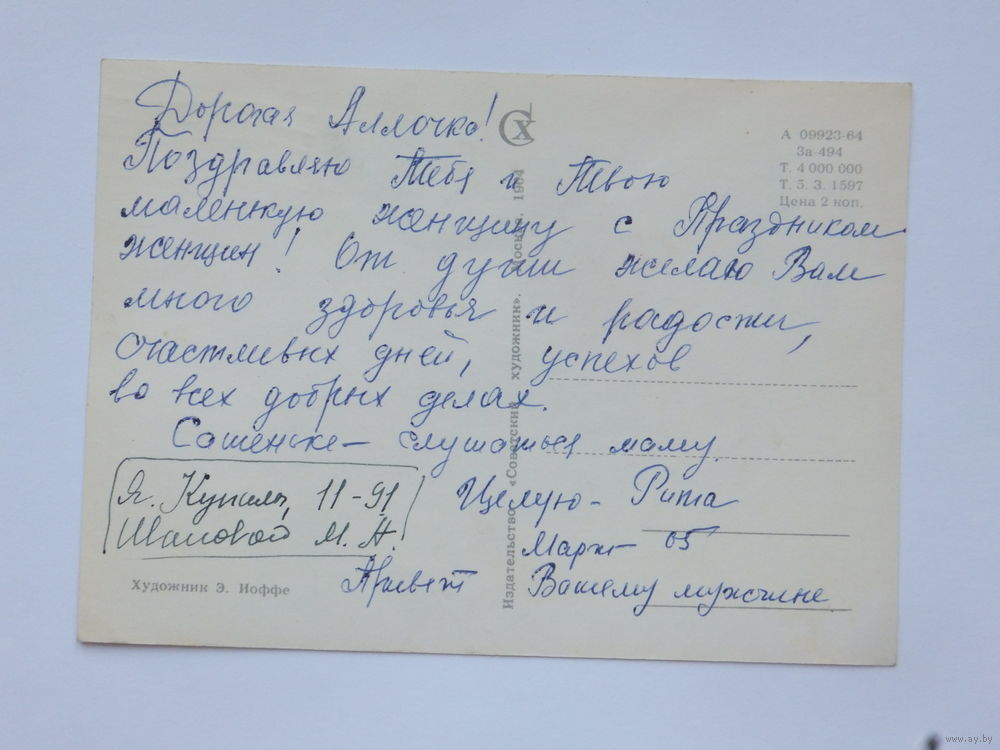 Дорогая Аллочка!
Поздравляю Тебя и Твою
маленькую женщину с Праздником
женщин! От души желаю Вам
много здоровья и радости,
счастливых дней, успехов
во всех добрых делах.
Сашеньке – слушаться маму.
Целую – Рита
Март 65
Привет Вашему мужчине
Я. Купалы, 11-91
М. Н.
Художник Э. Иоффе
Издательство «Советский художник». Москва. 1964
СХ
А 09923-64
За-494
Т. 4 000 000
Т. 5. 3. 1597
Цена 2 коп.
www.ay.by